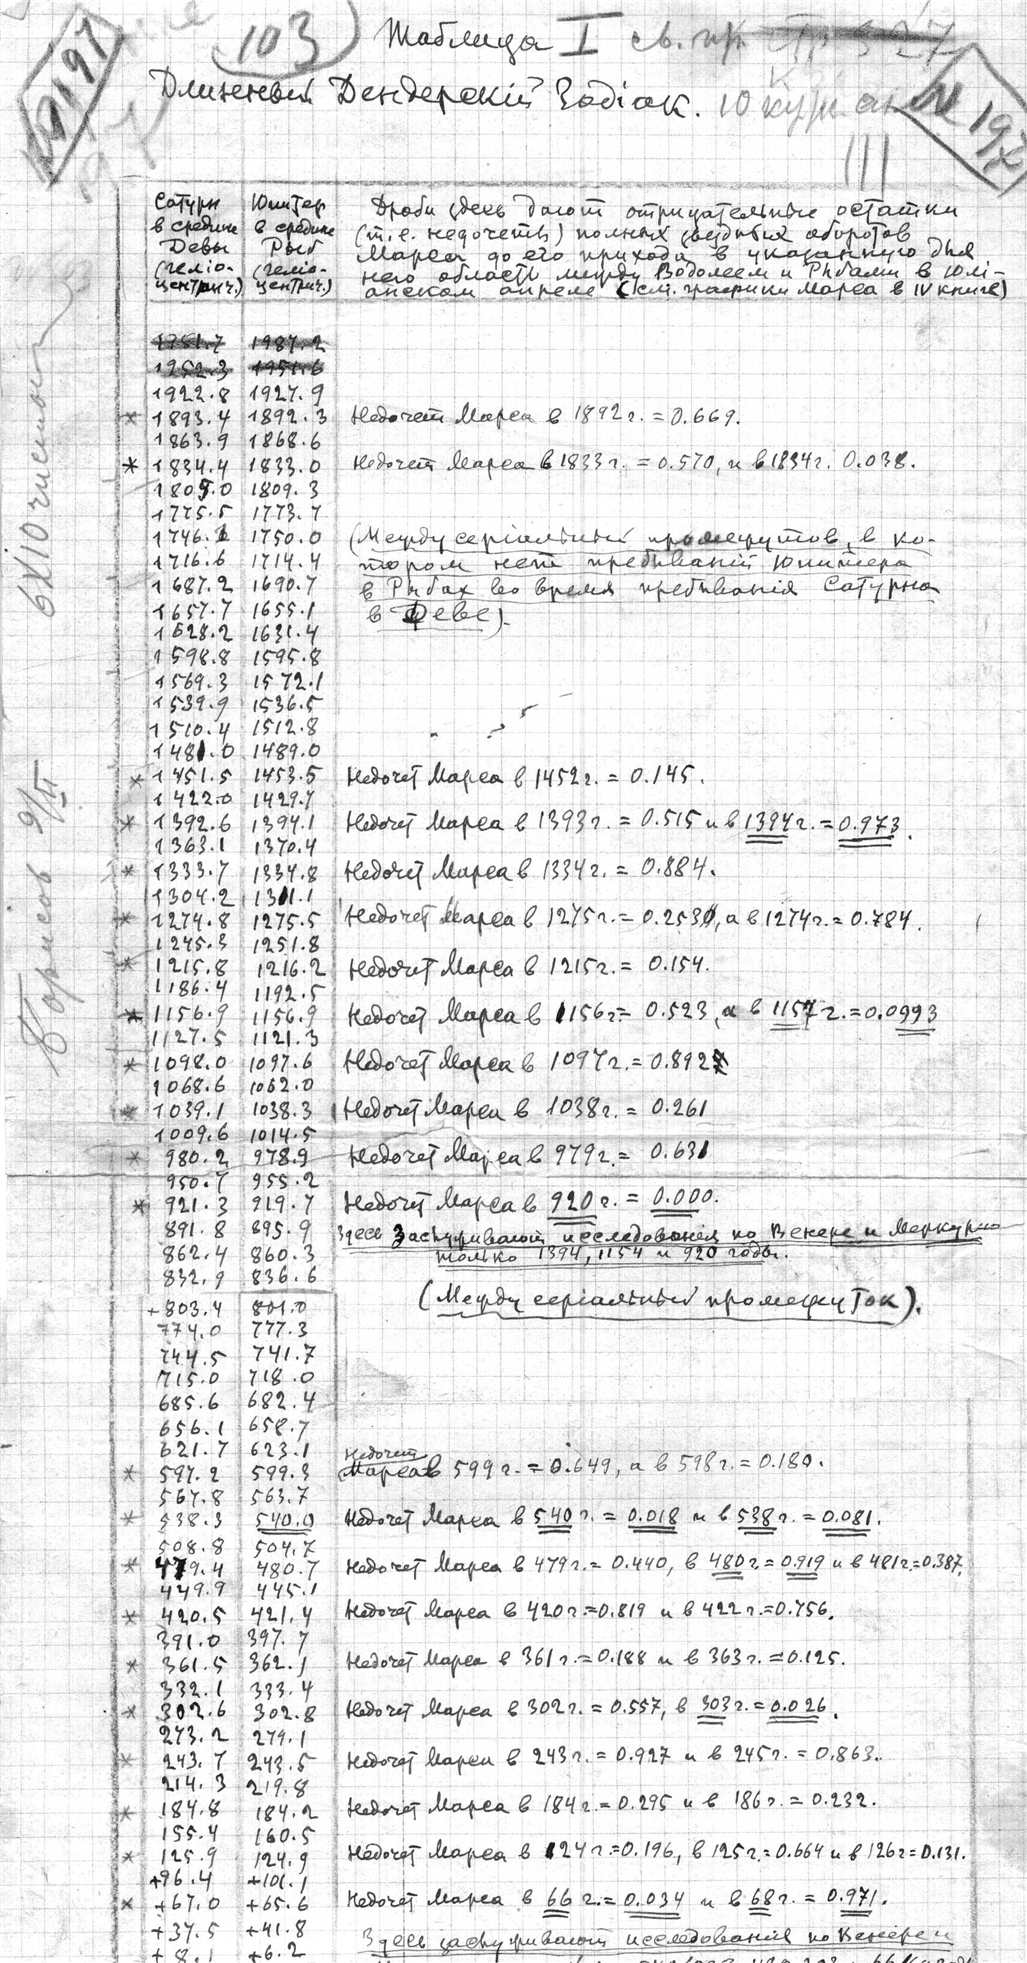 103
Таблица I
Длинный Дендерскій Зодіак.
III
№ 197
Сатурн в средине Девы (геліо-центрич.)
Юпитер в средине Рыб (геліо-центрич.)
Дроби здесь дают отрицательные остатки
(т.е. недочеты) полных звездных оборотов
Марса до его прихода в указанную для
него область между Водолеем и Рыбами в юлі-
анском апреле (см. графики Марса в IV книге)
1922.8 1927.9
* 1893.4 1892.3 Недочет Марса в 1892 г. = 0.669.
1863.9 1868.6
* 1834.4 1833.0 Недочет Марса в 1833 г. = 0.570, и в 1834 г. 0.038.
1805.0 1809.3
1775.5 1773.7
1746.1 1750.0 (Междусеріальный промежутов, в ко-
1716.6 1714.4 тором нет пребываній Юпитера
1687.2 1690.7 в Рыбах во время пребыванія Сатурна
1657.7 1655.1 в Деве).
1628.2 1631.4
1598.8 1595.8
1569.3 1572.1
1539.9 1536.5
1510.4 1512.8
1481.0 1489.0
* 1451.5 1453.5 Недочет Марса в 1452 г. = 0.145.
1422.0 1429.7
* 1392.6 1394.1 Недочет Марса в 1393 г. = 0.515 и в 1394 г. = 0.973.
1363.1 1370.4
* 1333.7 1334.8 Недочет Марса в 1334 г. = 0.884.
1304.2 1311.1
* 1274.8 1275.5 Недочет Марса в 1275 г. = 0.253, а в 1274 г. = 0.784.
1245.3 1251.8
* 1215.8 1216.2 Недочет Марса в 1215 г. = 0.154.
1186.4 1192.5
* 1156.9 1156.9 Недочет Марса в 1156 г. = 0.523, а в 1157 г. = 0.0993
1127.5 1121.3
* 1098.0 1097.6 Недочет Марса в 1097 г. = 0.892
1068.6 1062.0
* 1039.1 1038.3 Недочет Марса в 1038 г. = 0.261
1009.6 1014.5
* 980.2 978.9 Недочет Марса в 979 г. = 0.631
950.7 955.2
* 921.3 919.7 Недочет Марса в 920 г. = 0.000.
891.8 895.9 Здесь заслуживают исследованія по Венере и Меркурію
862.4 860.3 только 1394, 1154 и 920 годы.
832.9 836.6
+803.4 801.0 (Междусеріальный промежуток).
774.0 777.3
744.5 741.7
715.0 718.0
685.6 682.4
656.1 658.7
621.7 623.1
* 597.2 599.3 Недочет Марса в 599 г. = 0.649, а в 598 г. = 0.180.
567.8 563.7
* 538.3 540.0 Недочет Марса в 540 г. = 0.018 и в 538 г. = 0.081.
508.8 504.7
* 479.4 480.7 Недочет Марса в 479 г. = 0.440, в 480 г. = 0.919 и в 481 г. = 0.387.
449.9 445.1
* 420.5 421.4 Недочет Марса в 420 г. = 0.819 и в 422 г. = 0.756.
391.0 397.7
* 361.5 362.1 Недочет Марса в 361 г. = 0.188 и в 363 г. = 0.125.
332.1 333.4
* 302.6 302.8 Недочет Марса в 302 г. = 0.557, в 303 г. = 0.026.
273.2 279.1
* 243.7 243.5 Недочет Марса в 243 г. = 0.927 и в 245 г. = 0.863.
214.3 219.8
* 184.8 184.2 Недочет Марса в 184 г. = 0.295 и в 186 г. = 0.232.
155.4 160.5
* 125.9 124.9 Недочет Марса в 124 г. = 0.196, в 125 г. = 0.664 и в 126 г. = 0.131.
+96.4 +101.1
* +67.0 +65.6 Недочет Марса в 66 г. = 0.034 и в 68 г. = 0.971.
+37.5 +41.8 Здесь заслуживают исследованія по Венере и
+8.1 +6.2
Борисов 9/II 6 X 10 чисткой